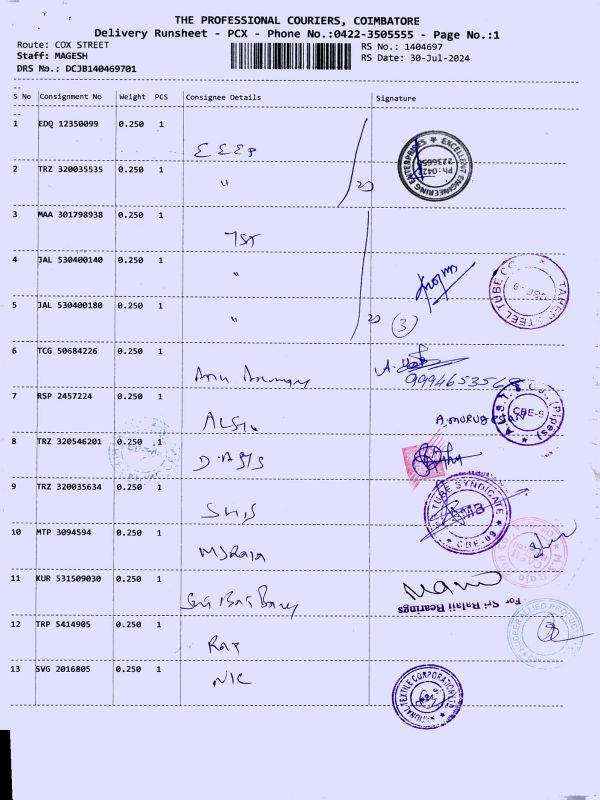 THE PROFESSIONAL COURIERS, COIMBATORE
Delivery Runsheet - PCX - Phone No.:0422-3505555 - Page No.:1
Route: COX STREET
RS No.: 1404697
Staff: MAGESH
RS Date: 30-Jul-2024
DRS No.: DCJB140469701
S No Consignment No Weight PCS Consignee Details Signature
1 EDQ 12350099 0.250 1
EEEP
2 TRZ 320035535 0.250 1
"
EXCELLENT ENGINEERING ENTERPRISES
3 MAA 301798938 0.250 1
TST
4 JAL 530400140 0.250 1
"
5 JAL 530400180 0.250 1
"
3
6 TCG 50684226 0.250 1
7 RSP 2457224 0.250 1
A. MURUGESAN
CBE-9
(Pipes)
8 TRZ 320546201 0.250 1
9 TRZ 320035634 0.250 1
TUBE SYNDICATE
CBE-09
10 MTP 3094594 0.250 1
MJRaja
11 KUR 531509030 0.250 1
Mani
For Sri Balaji Bearings
12 TRP 5414905 0.250 1
13 SVG 2016805 0.250 1
NIC
NATIONAL TEXTILE CORPORATION